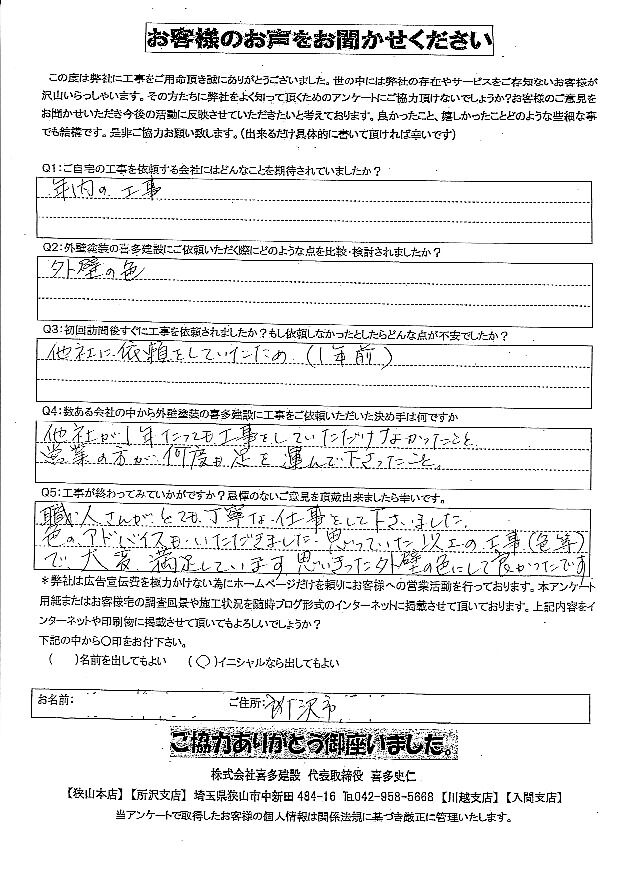 お客様のお声をお聞かせください
この度は弊社に工事をご用命頂き誠にありがとうございました。世の中には弊社の存在やサービスをご存知ないお客様が
沢山いらっしゃいます。その方たちに弊社をよく知って頂くためのアンケートにご協力頂けないでしょうか？お客様のご意見を
お聞かせいただき今後の活動に反映させていただきたいと考えております。良かったこと、嬉しかったことどのような些細な事
でも結構です。是非ご協力お願い致します。(出来るだけ具体的に書いて頂ければ幸いです)
Q1:ご自宅の工事を依頼する会社にはどんなことを期待されていましたか？
年内の工事
Q2:外壁塗装の喜多建設にご依頼いただく際にどのような点を比較・検討されましたか？
外壁の色
Q3:初回訪問後すぐに工事を依頼されましたか？もし依頼しなかったとしたらどんな点が不安でしたか？
他社に依頼をしていたため (1年前)
Q4:数ある会社の中から外壁塗装の喜多建設に工事をご依頼いただいた決め手は何ですか
他社が1年たっても工事をしていただけなかったこと
営業の方が何度も足を運んで下さったこと。
Q5:工事が終わってみていかがですか？忌憚のないご意見を頂戴出来ましたら幸いです。
職人さんがとても丁寧な仕事をして下さいました
色のアドバイスもいただきました 思っていた以上の工事(色等)
で大変満足しています 思いきった外壁の色にして良かったです
＊弊社は広告宣伝費を極力かけない為にホームページだけを頼りにお客様への営業活動を行っております。本アンケート
用紙またはお客様宅の調査風景や施工状況を随時ブログ形式のインターネットに掲載させて頂いております。上記内容をイ
ンターネットや印刷物に掲載させて頂いてもよろしいでしょうか？
下記の中から〇印をお付下さい。
(　)名前を出してもよい　(〇)イニシャルなら出してもよい
お名前:　ご住所:所沢市
ご協力ありがとう御座いました。
株式会社喜多建設　代表取締役　喜多史仁
【狭山本店】【所沢支店】埼玉県狭山市中新田484-16 ℡042-958-5668【川越支店】【入間支店】
当アンケートで取得したお客様の個人情報は関係法規に基づき厳正に管理いたします。